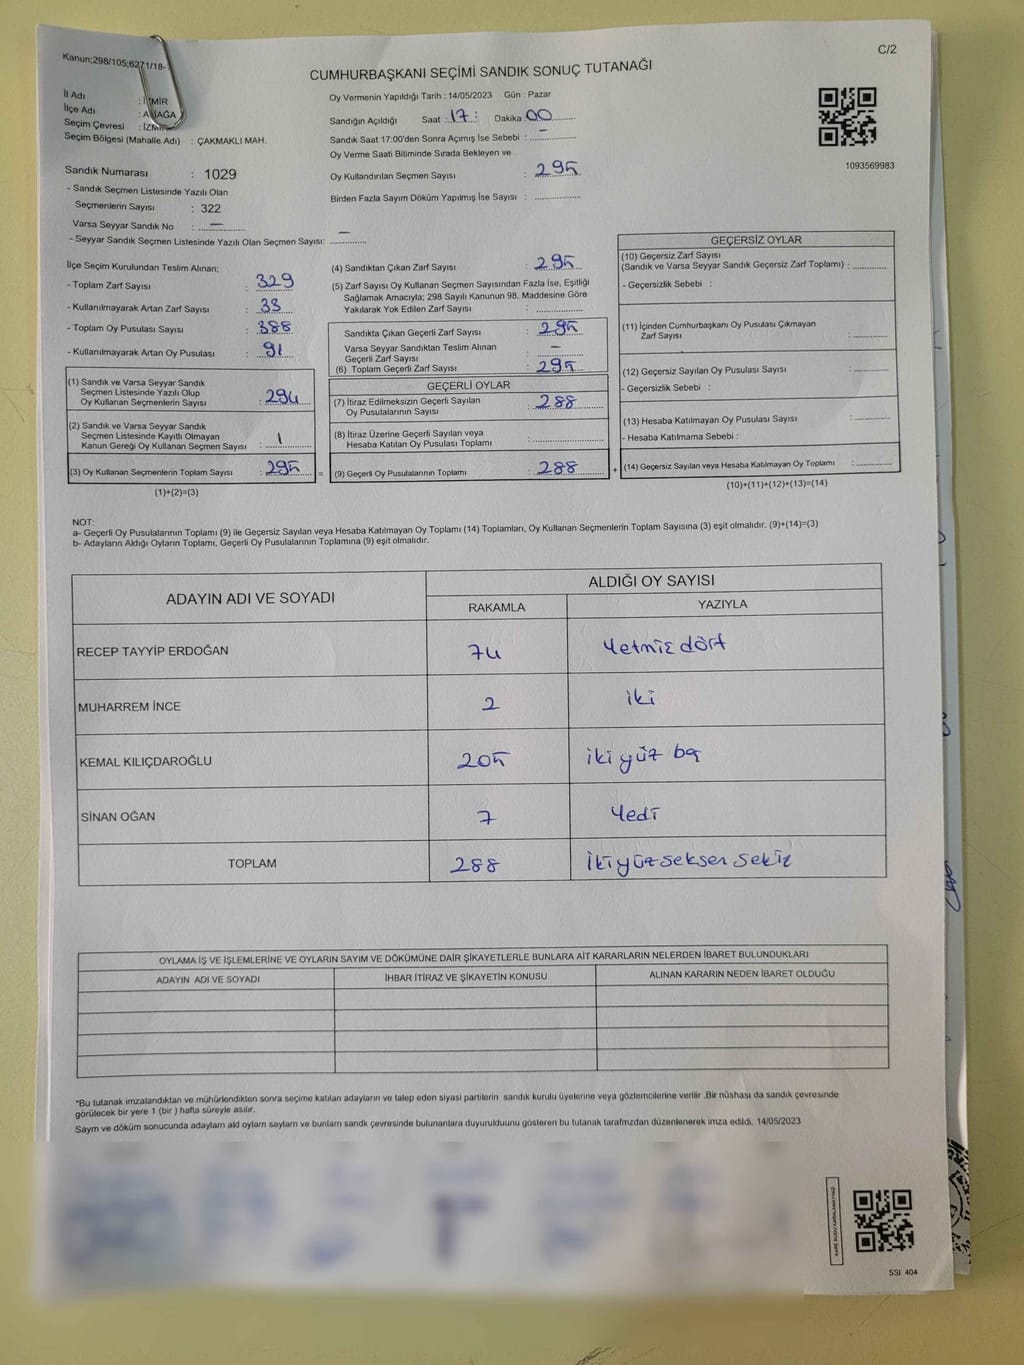 Kanun;298/105;6271/18-
C/2
CUMHURBAŞKANI SEÇİMİ SANDIK SONUÇ TUTANAĞI
İl Adı : İZMİR
İlçe Adı : ALİAĞA
Seçim Çevresi : İZMİR
Seçim Bölgesi (Mahalle Adı) : ÇAKMAKLI MAH.
Oy Vermenin Yapıldığı Tarih : 14/05/2023 Gün : Pazar
Sandığın Açıldığı Saat : 17: Dakika 00
Sandık Saat 17:00'den Sonra Açımış İse Sebebi : –
Oy Verme Saati Bitiminde Sırada Bekleyen ve
Oy Kullandırılan Seçmen Sayısı : 295
Birden Fazla Sayım Döküm Yapılmış İse Sayısı :
1093569983
Sandık Numarası : 1029
- Sandık Seçmen Listesinde Yazılı Olan
Seçmenlerin Sayısı : 322
Varsa Seyyar Sandık No : –
- Seyyar Sandık Seçmen Listesinde Yazılı Olan Seçmen Sayısı: –
İlçe Seçim Kurulundan Teslim Alınan;
- Toplam Zarf Sayısı : 329
- Kullanılmayarak Artan Zarf Sayısı : 33
- Toplam Oy Pusulası Sayısı : 388
- Kullanılmayarak Artan Oy Pusulası : 91
(1) Sandık ve Varsa Seyyar Sandık
Seçmen Listesinde Yazılı Olup
Oy Kullanan Seçmenlerin Sayısı : 294
(2) Sandık ve Varsa Seyyar Sandık
Seçmen Listesinde Kayıtlı Olmayan
Kanun Gereği Oy Kullanan Seçmen Sayısı : 1
(3) Oy Kullanan Seçmenlerin Toplam Sayısı : 295 =
(1)+(2)=(3)
(4) Sandıktan Çıkan Zarf Sayısı : 295
(5) Zarf Sayısı Oy Kullanan Seçmen Sayısından Fazla İse, Eşitliği
Sağlamak Amacıyla; 298 Sayılı Kanunun 98. Maddesine Göre
Yakılarak Yok Edilen Zarf Sayısı :
Sandıkta Çıkan Geçerli Zarf Sayısı : 295
Varsa Seyyar Sandıktan Teslim Alınan
Geçerli Zarf Sayısı : –
(6) Toplam Geçerli Zarf Sayısı : 295
GEÇERLİ OYLAR
(7) İtiraz Edilmeksizin Geçerli Sayılan
Oy Pusulalarının Sayısı : 288
(8) İtiraz Üzerine Geçerli Sayılan veya
Hesaba Katılan Oy Pusulası Toplamı :
(9) Geçerli Oy Pusulalarının Toplamı : 288 +
GEÇERSİZ OYLAR
(10) Geçersiz Zarf Sayısı
(Sandık ve Varsa Seyyar Sandık Geçersiz Zarf Toplamı) :
- Geçersizlik Sebebi :
(11) İçinden Cumhurbaşkanı Oy Pusulası Çıkmayan
Zarf Sayısı :
(12) Geçersiz Sayılan Oy Pusulası Sayısı :
- Geçersizlik Sebebi :
(13) Hesaba Katılmayan Oy Pusulası Sayısı :
- Hesaba Katılmama Sebebi :
(14) Geçersiz Sayılan veya Hesaba Katılmayan Oy Toplamı :
(10)+(11)+(12)+(13)=(14)
NOT:
a- Geçerli Oy Pusulalarının Toplamı (9) ile Geçersiz Sayılan veya Hesaba Katılmayan Oy Toplamı (14) Toplamları, Oy Kullanan Seçmenlerin Toplam Sayısına (3) eşit olmalıdır. (9)+(14)=(3)
b- Adayların Aldığı Oyların Toplamı, Geçerli Oy Pusulalarının Toplamına (9) eşit olmalıdır.
ADAYIN ADI VE SOYADI
ALDIĞI OY SAYISI
RAKAMLA YAZIYLA
RECEP TAYYİP ERDOĞAN 74 Yetmiş dört
MUHARREM İNCE 2 iki
KEMAL KILIÇDAROĞLU 205 iki yüz beş
SİNAN OĞAN 7 Yedi
TOPLAM 288 İkiyüz seksen sekiz
OYLAMA İŞ VE İŞLEMLERİNE VE OYLARIN SAYIM VE DÖKÜMÜNE DAİR ŞİKAYETLERLE BUNLARA AİT KARARLARIN NELERDEN İBARET BULUNDUKLARI
ADAYIN ADI VE SOYADI İHBAR İTİRAZ VE ŞİKAYETİN KONUSU ALINAN KARARIN NEDEN İBARET OLDUĞU
*Bu tutanak imzalandıktan ve mühürlendikten sonra seçime katılan adayların ve talep eden siyasi partilerin sandık kurulu üyelerine veya gözlemcilerine verilir .Bir nüshası da sandık çevresinde
görülecek bir yere 1 (bir ) hafta süreyle asılır.
Sayım ve döküm sonucunda adayların ald oyların sayların ve bunların sandk çevresinde bulunanlara duyurulduunu gösteren bu tutanak tarafmzdan düzenlenerek imza edildi. 14/05/2023
SSI 404